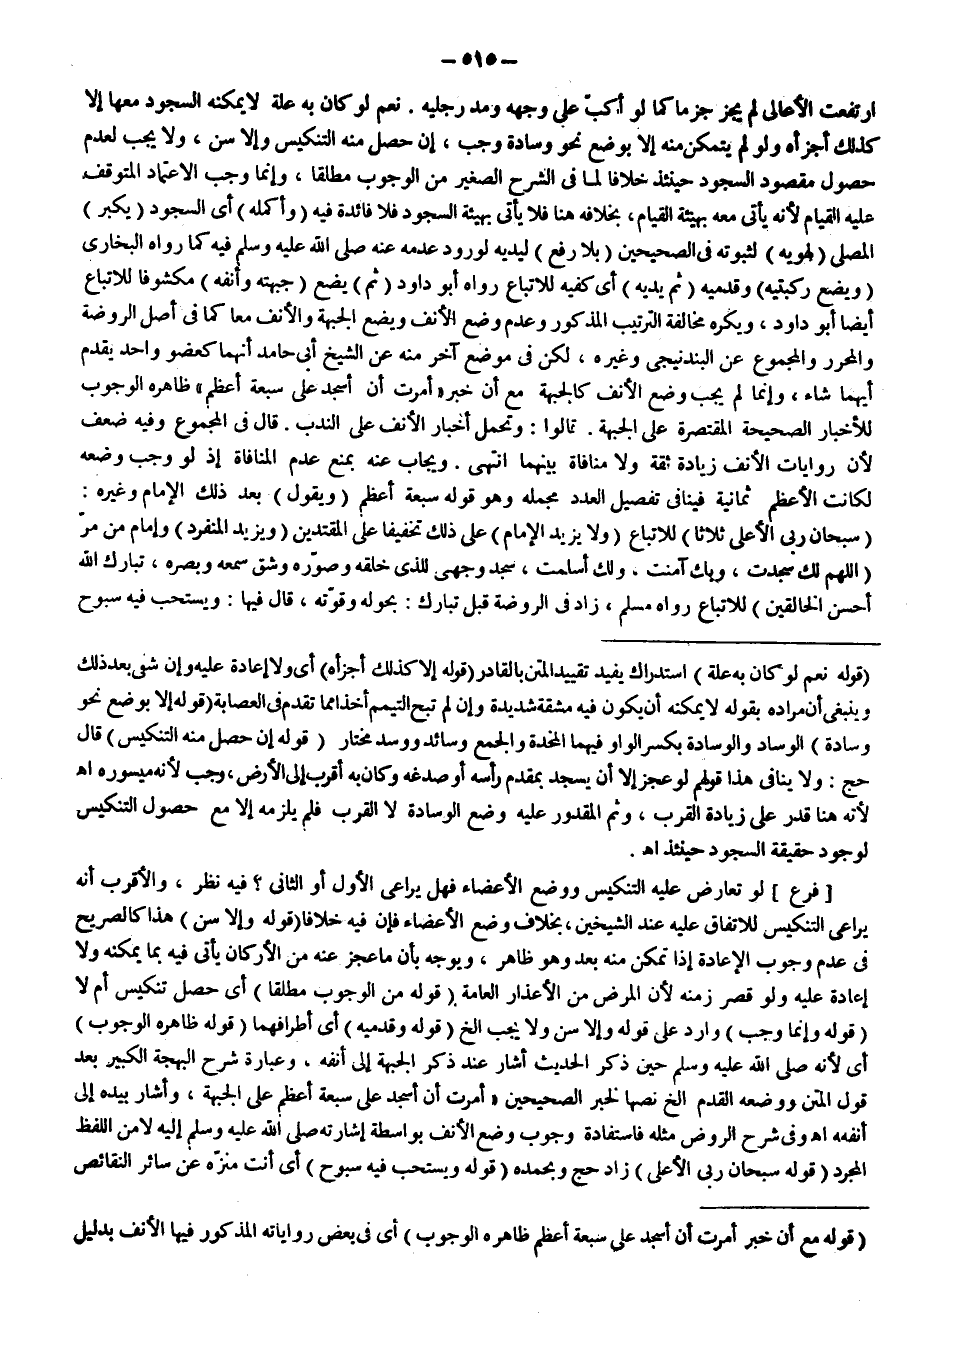 — ٥١٥ —
ارتفعت الأعالى لم يجز جزما كما لو أكبّ على وجهه ومد رجليه . نعم لو كان به علة لايمكنه السجود معها إلا
كذلك أجزأه ولو لم يتمكن منه إلا بوضع نحو وسادة وجب ، إن حصل منه التنكيس وإلا سن ، ولا يجب لعدم
حصول مقصود السجود حينئذ خلافا لما فى الشرح الصغير من الوجوب مطلقا ، وإنما وجب الاعتماد المتوقف
عليه القيام لأنه يأتى معه بهيئة القيام، بخلافه هنا فلا يأتى بهيئة السجود فلا فائدة فيه ( وأكمله ) أى السجود ( يكبر )
المصلى ( لهويه ) لثبوته فى الصحيحين ( بلا رفع ) ليديه لورود عدمه عنه صلى الله عليه وسلم فيه كما رواه البخارى
( ويضع ركبتيه) وقدميه ( ثم يديه ) أى كفيه للاتباع رواه أبو داود ( ثم ) يضع ( جبهته وأنفه ) مكشوفا للاتباع
أيضا أبو داود ، ويكره مخالفة الترتيب المذكور وعدم وضع الأنف ويضع الجبهة والأنف معا كما فى أصل الروضة
والمحرر والمجموع عن البندنيجى وغيره ، لكن فى موضع آخر منه عن الشيخ أبى حامد أنهما كعضو واحد يقدم
أيهما شاء ، وإنما لم يجب وضع الأنف كالجبهة مع أن خبر « أمرت أن أسجد على سبعة أعظم » ظاهره الوجوب
للأخبار الصحيحة المقتصرة على الجبهة . قالوا : وتحمل أخبار الأنف على الندب . قال فى المجموع وفيه ضعف
لأن روايات الأنف زيادة ثقة ولا منافاة بينهما انتهى . ويجاب عنه بمنع عدم المنافاة إذ لو وجب وضعه
لكانت الأعظم ثمانية فينافى تفصيل العدد مجمله وهو قوله سبعة أعظم ( ويقول ) بعد ذلك الإمام وغيره :
( سبحان ربى الأعلى ثلاثا ) للاتباع ( ولا يزيد الإمام ) على ذلك تخفيفا على المقتدين ( ويزيد المنفرد ) وإمام من مرّ
( اللهم لك سجدت ، وبك آمنت . ولك أسلمت ، سجد وجهى للذى خلقه وصوّره وشق سمعه وبصره ، تبارك الله
أحسن الخالقين ) للاتباع رواه مسلم ، زاد فى الروضة قبل تبارك : بحوله وقوّته ، قال فيها : ويستحب فيه سبوح
(قوله نعم لو كان به علة ) استدراك يفيد تقييد المتن بالقادر (قوله إلا كذلك أجزأه) أى ولا إعادة عليه وإن شفى بعد ذلك
وينبغى أن مراده بقوله لايمكنه أن يكون فيه مشقة شديدة وإن لم تبح التيمم أخذا مما تقدم فى العصابة (قوله إلا بوضع نحو
وسادة ) الوساد والوسادة بكسر الواو فيهما المخدة والجمع وسائد ووسد مختار ( قوله إن حصل منه التنكيس ) قال
حج : ولا ينافى هذا قولهم لو عجز إلا أن يسجد بمقدم رأسه أو صدغه وكان به أقرب إلى الأرض ، وجب لأنه ميسوره اهـ
لأنه هنا قدر على زيادة القرب ، وثم المقدور عليه وضع الوسادة لا القرب فلم يلزمه إلا مع حصول التنكيس
لوجود حقيقة السجود حينئذ اهـ .
[ فرع ] لو تعارض عليه التنكيس ووضع الأعضاء فهل يراعى الأول أو الثانى ؟ فيه نظر ، والأقرب أنه
يراعى التنكيس للاتفاق عليه عند الشيخين ، بخلاف وضع الأعضاء فإن فيه خلافا (قوله وإلا سن ) هذا كالصريح
فى عدم وجوب الإعادة إذا تمكن منه بعد وهو ظاهر ، ويوجه بأن ماعجز عنه من الأركان يأتى فيه بما يمكنه ولا
إعادة عليه ولو قصر زمنه لأن المرض من الأعذار العامة ( قوله من الوجوب مطلقا ) أى حصل تنكيس أم لا
( قوله وإنما وجب ) وارد على قوله وإلا سن ولا يجب الخ ( قوله وقدميه ) أى أطرافهما ( قوله ظاهره الوجوب )
أى لأنه صلى الله عليه وسلم حين ذكر الحديث أشار عند ذكر الجبهة إلى أنفه . وعبارة شرح البهجة الكبير بعد
قول المتن ووضعه القدم الخ نصها لخبر الصحيحين « أمرت أن أسجد على سبعة أعظم على الجبهة ، وأشار بيده إلى
أنفه اهـ وفى شرح الروض مثله فاستفادة وجوب وضع الأنف بواسطة إشارته صلى الله عليه وسلم إليه لا من اللفظ
المجرد ( قوله سبحان ربى الأعلى ) زاد حج وبحمده ( قوله ويستحب فيه سبوح ) أى أنت منزّه عن سائر النقائص
( قوله مع أن خبر أمرت أن أسجد على سبعة أعظم ظاهره الوجوب ) أى فى بعض رواياته المذكور فيها الأنف بدليل